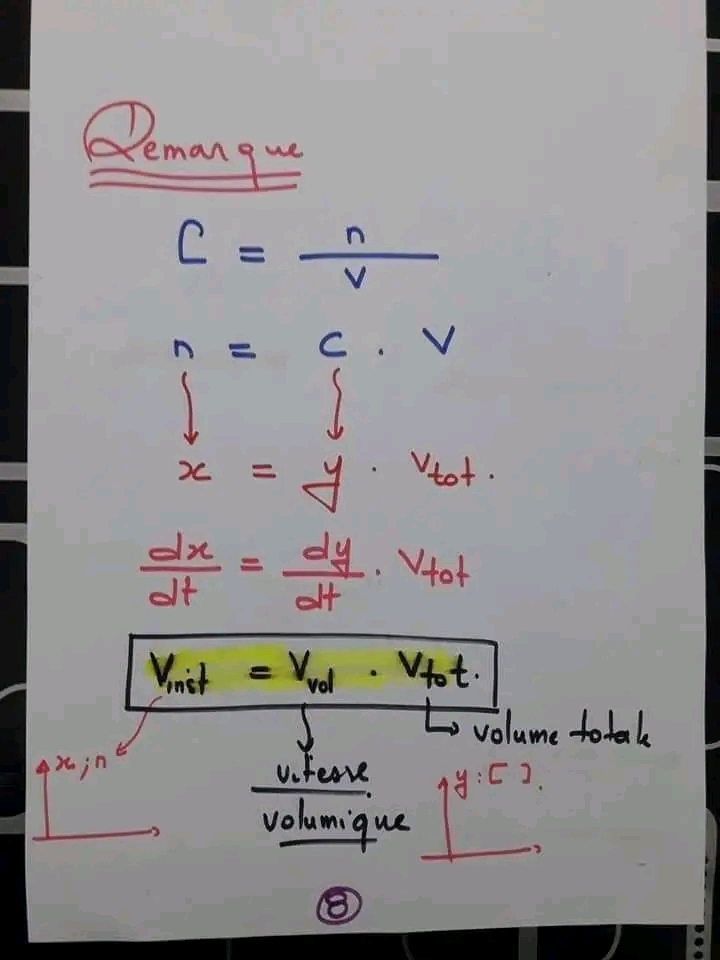 Remarque
C = n/V
n = C . V
x = y . Vtot.
dx/dt = dy/dt . Vtot
Vinst = Vvol . Vtot.
volume totale
x ; n
vitesse
y : [ ].
volumique
8